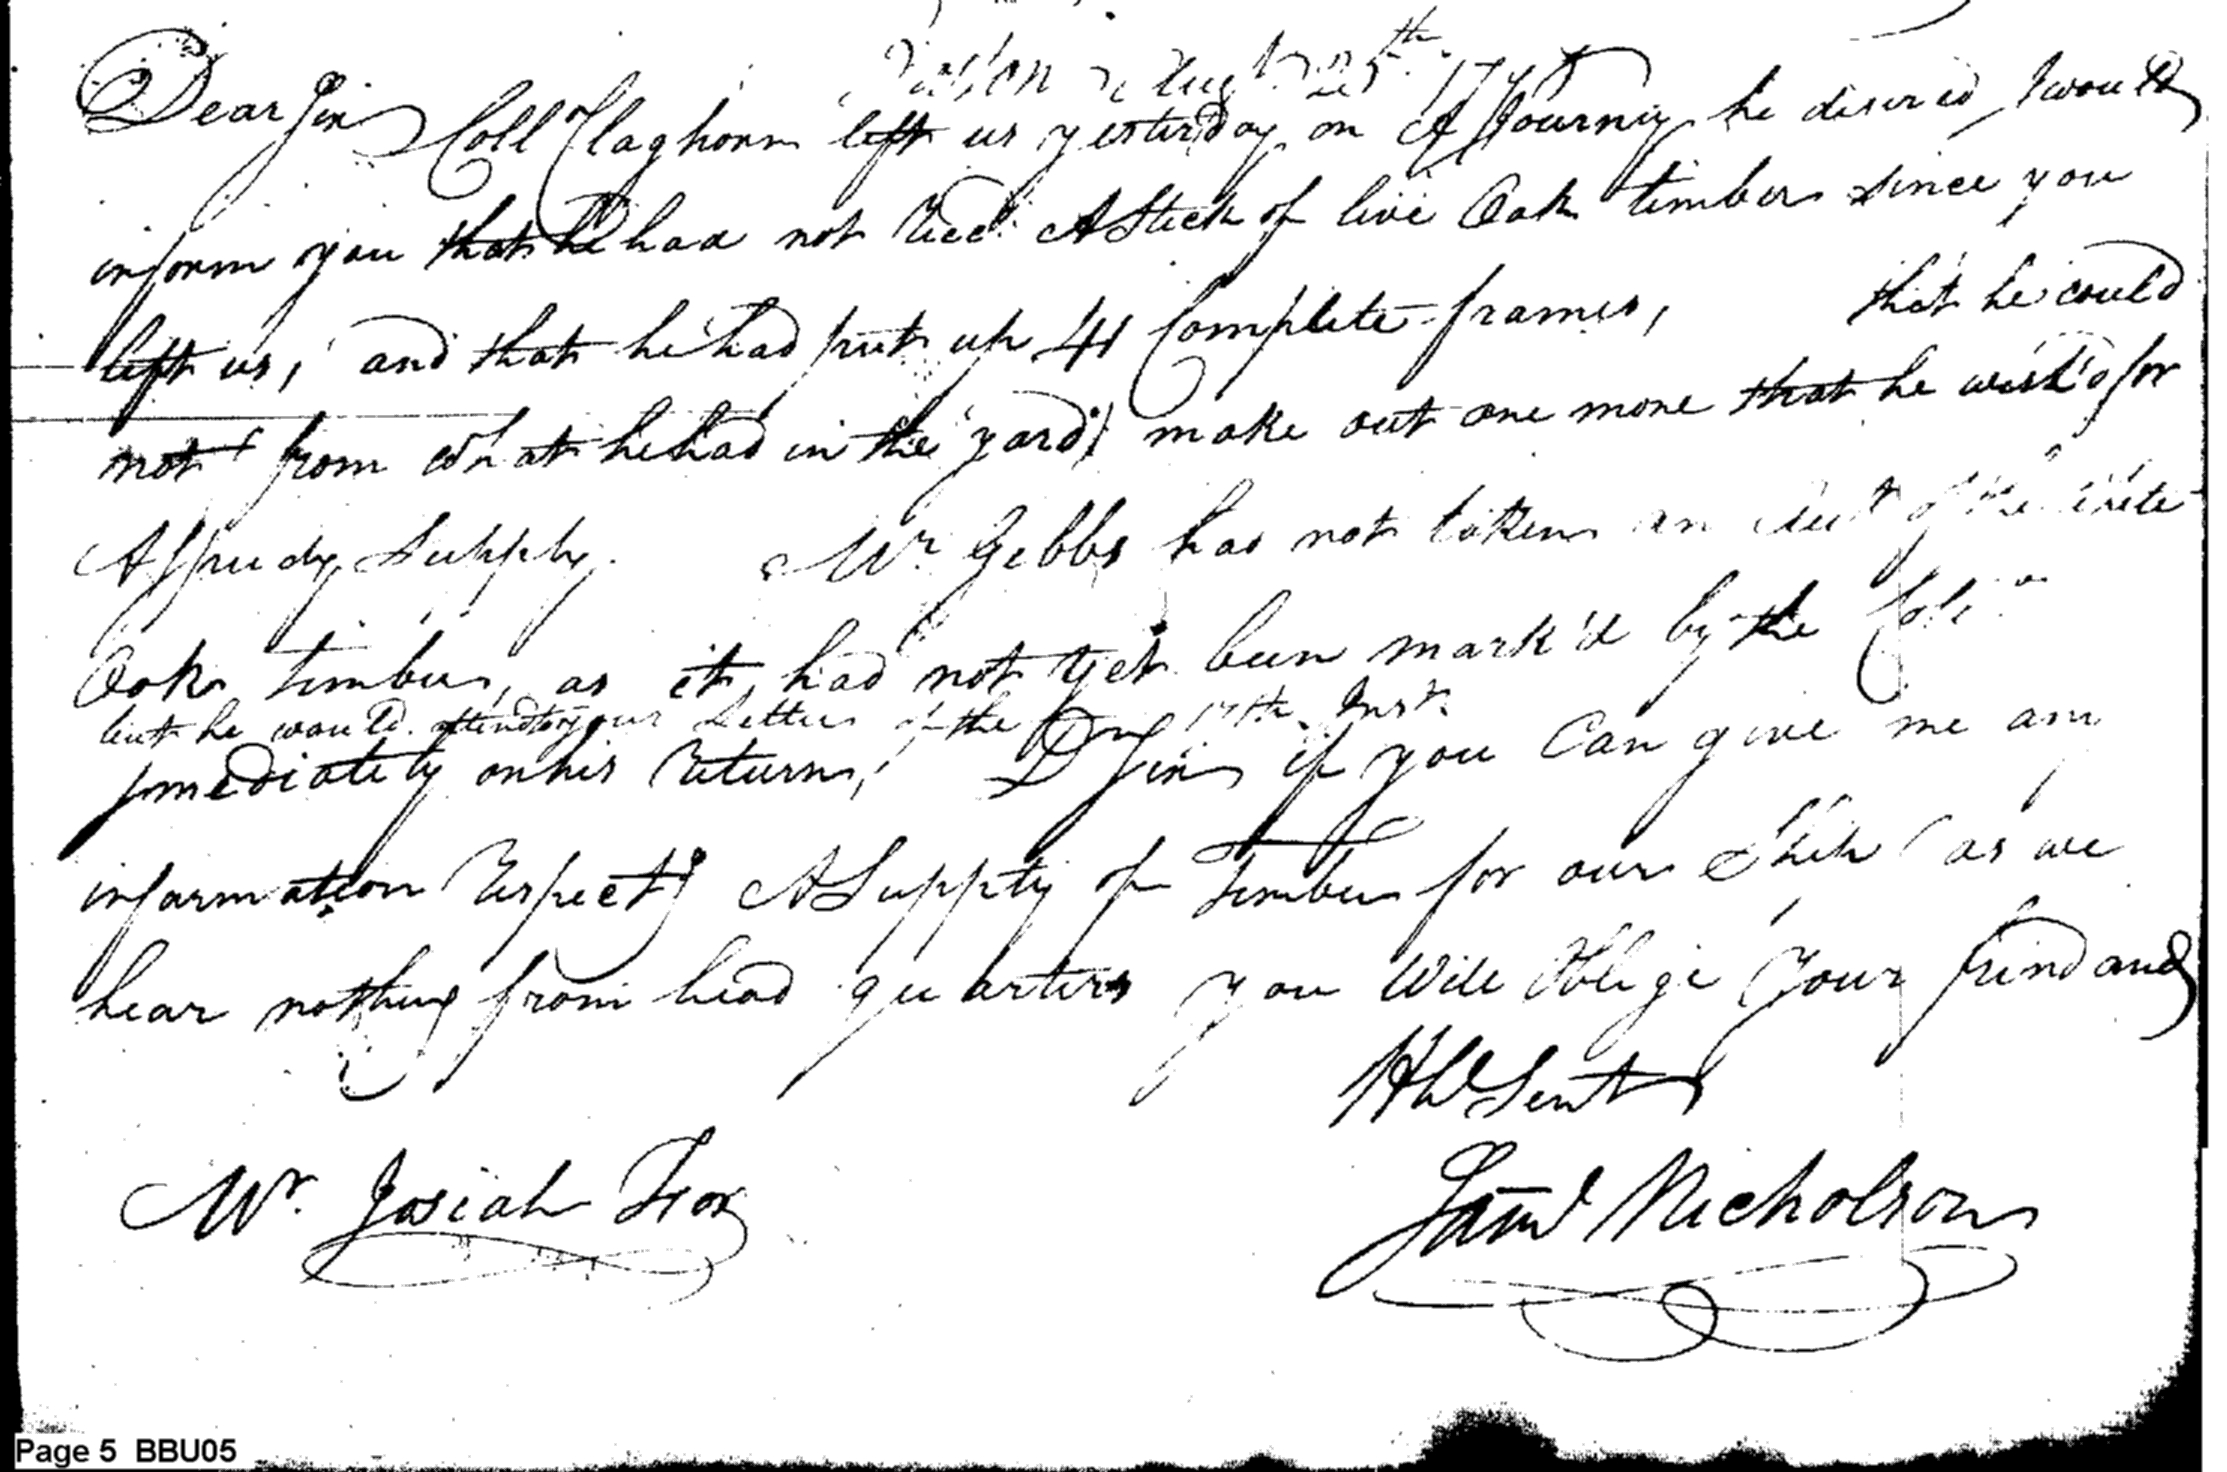 Boston August 25th 179
Dear Sir Coll Claghorn left us yesterday on A Journey he disired I would
inform you that he had not Reed. A Stick of live Oak timber since you
left us, and that he had put up 41 Complete frames, that he could
not from what he had in the yard, make out one more that he wish'd for
A speudy Supply. Mr Gibbs has not taken an of the
Oak timber, as it had not yet been mark'd by the
but he would attend to your Letter of the 17th Inst.
Imediately on his Return, D Sir if you Can give me any
information Respectg A Supply of Timber for our Ship as we
hear nothing from head quarters you Will Oblige Your frind and
Hbl Sert
Saml Nicholson
Mr. Josiah Fox
Page 5 BBU05